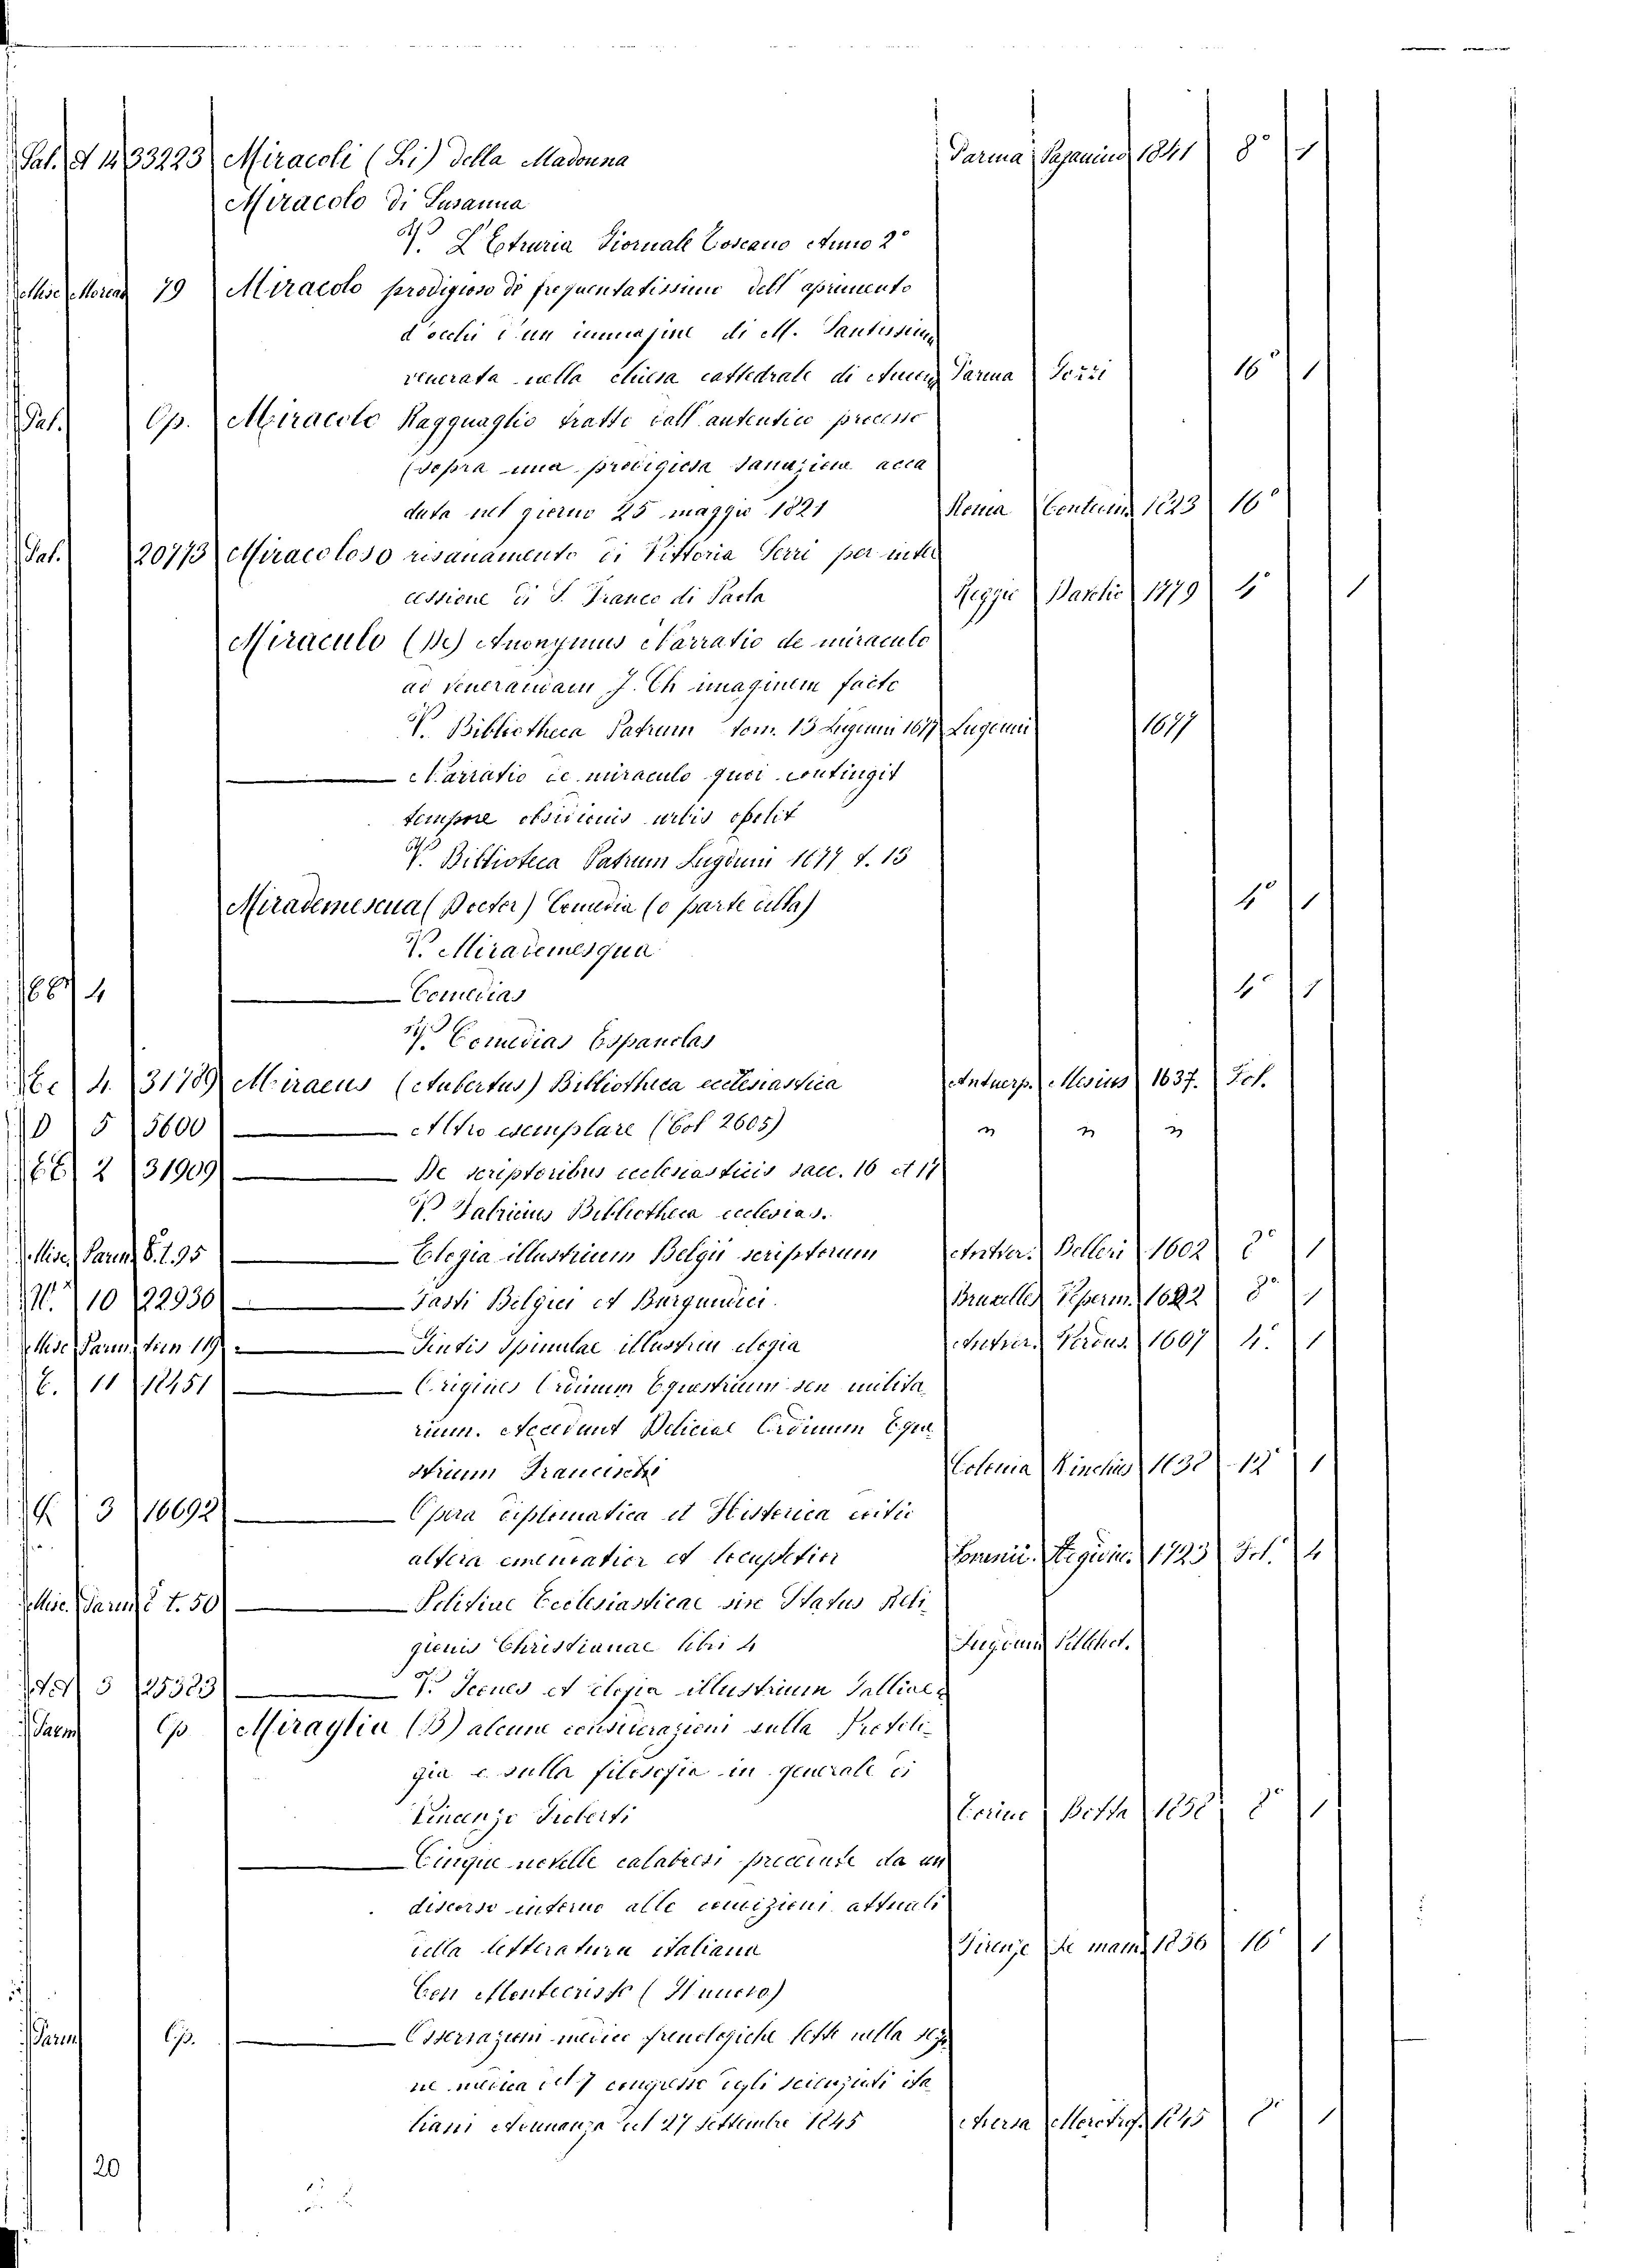 Pal. A 14 33223 Miracoli (Li) della Madonna Parma Paganino 1841 8° 1
Miracolo di Susanna
V. L'Etruria Giornale Toscano Anno 2°
Misc. Moreau 79 Miracolo prodigioso di frequentatissimo dell'aprimento
d'occhi d'un immagine di M. Santissima
venerata nella chiesa cattedrale di Parma Gozzi 16° 1
Pal. Op. Miracolo Ragguaglio tratto dall'autentico processo
sopra una prodigiosa sanazione acca
duta nel giorno 25 maggio 1821 Roma 1823 16°
Pal. 20773 Miracoloso risanamento di Vittoria Serri per inter
cessione di S. Franco di Paola Reggio 1879 4° 1
Miraculo (De) Anonymus Narratio de miraculo
ad venerandam J. Ch imaginem facto
V. Bibliotheca Patrum tom. 13 Lugduni 1677 Lugduni 1677
Narratio de miraculo quod contingit
tempore obsidionis urbis
V. Biblioteca Patrum Lugduni 1677 t. 13
Mirademescua (Doctor) Comedia (o parte della) 4° 1
V. Mirademesqua
4 Comedias 4° 1
V. Comedias Espanolas
4 31789 Miraeus (Aubertus) Bibliotheca ecclesiastica Antuerp. Mesius 1637. Fol.
D 5 5600 Altro esemplare (Col 2605) " " "
2 31909 De scriptoribus ecclesiasticis saec. 16 et 17
V. Fabricius Bibliotheca ecclesias.
Misc. Parm. 8. t. 95 Elogia illustrium Belgii scriptorum Antver. Belleri 1602 8° 1
10 22930 Fasti Belgici et Burgundici Bruxelles Peperm. 1622 8° 1
Misc. Parm. 119 Gentis Spinulae illustrium elogia Antver. 1607 4° 1
11 12451 Origines Ordinum Equestrium seu milita
rium. Accedunt Deliciae Ordinum Eque
strium Francischi Colonia Kinchius 1638 12° 1
3 16692 Opera diplomatica et Historica editio
altera emendatior et locupletior 1723 Fol. 4
Misc. Parm. 8 t. 50 Politiae Ecclesiasticae sive Status Reli
gionis Christianae libri 4 Lugduni Pillehot.
5 25323 V. Icones et elogia illustrium Galliae
Parm Op. Miraglia (B) alcune considerazioni sulla Protolo
gia e sulla filosofia in generale di
Vincenzo Gioberti Torino Botta 1858 8° 1
Cinque novelle calabresi precedute da un
discorso intorno alle condizioni attuali
della letteratura italiana Firenze Le monnier 1856 16° 1
Con Montecristo (Nuovo)
Parm Op. Osservazioni medico frenologiche lette nella sezio
ne medica del 7 congresso degli scienziati ita
liani Adunanza del 27 Settembre 1845 Aversa 1845 8° 1
20